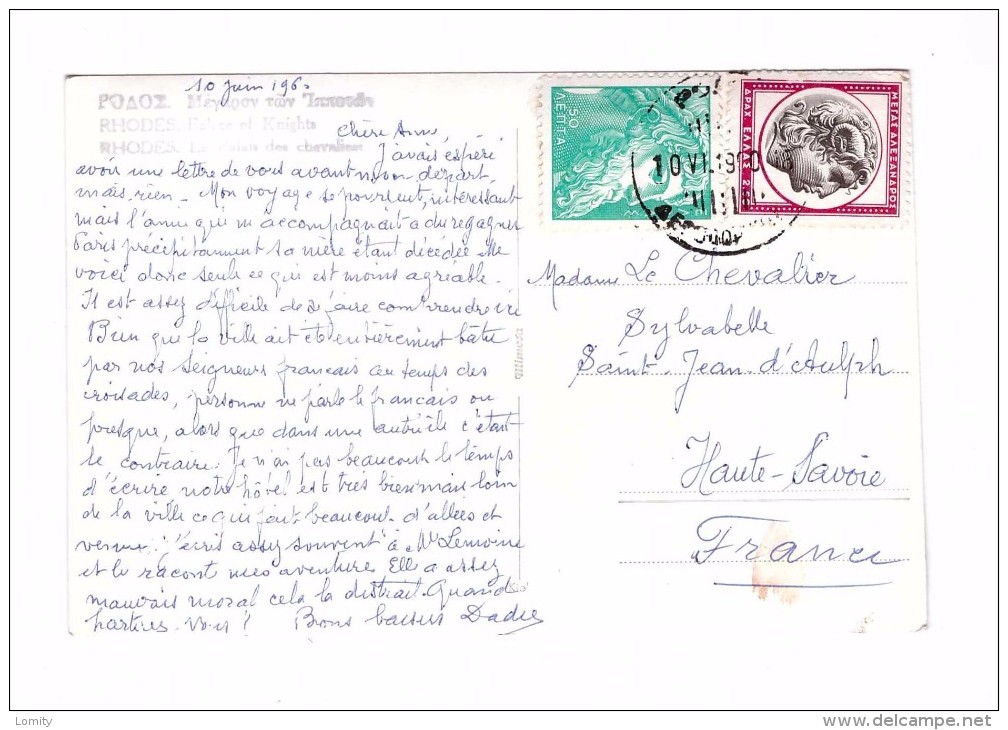 10 juin 196
ΡΟΔΟΣ. Μέγαρον τῶν Ἱπποτῶν
RHODES. Palace of Knights
RHODES. Le Palais des chevaliers
chère Anne,
J'avais espéré
avoir une lettre de vous avant mon départ
mais rien - Mon voyage se poursuit, intéressant
mais l'amie qui m'accompagnait a du regagner
Paris précipitamment sa mère étant décédée Me
voici donc seule ce qui est moins agréable.
Il est assez difficile de se faire comprendre ici
Bien que la ville ait été entièrement bâtie
par nos Seigneurs français au temps des
croisades, personne ne parle le français ou
presque, alors que dans une autre île c'était
le contraire. Je n'ai pas beaucoup le temps
d'écrire notre hôtel est très bien mais loin
de la ville ce qui fait beaucoup d'allées et
venues. J'écris assez souvent à Me Lemoine
et le racont mes aventure Elle a assez
mauvais moral cela la distrait. Quand
partirez-vous? Bons baisers Dadie
ΛΕΠΤΑ 50
ΜΕΓΑΣ ΑΛΕΞΑΝΔΡΟΣ
ΔΡΑΧ. ΕΛΛΑΣ 2
10 VI. 1960
Madame Le Chevalier
Sylvabelle
Saint-Jean-d'Aulph
Haute-Savoie
France
Lomity
delcampe.net